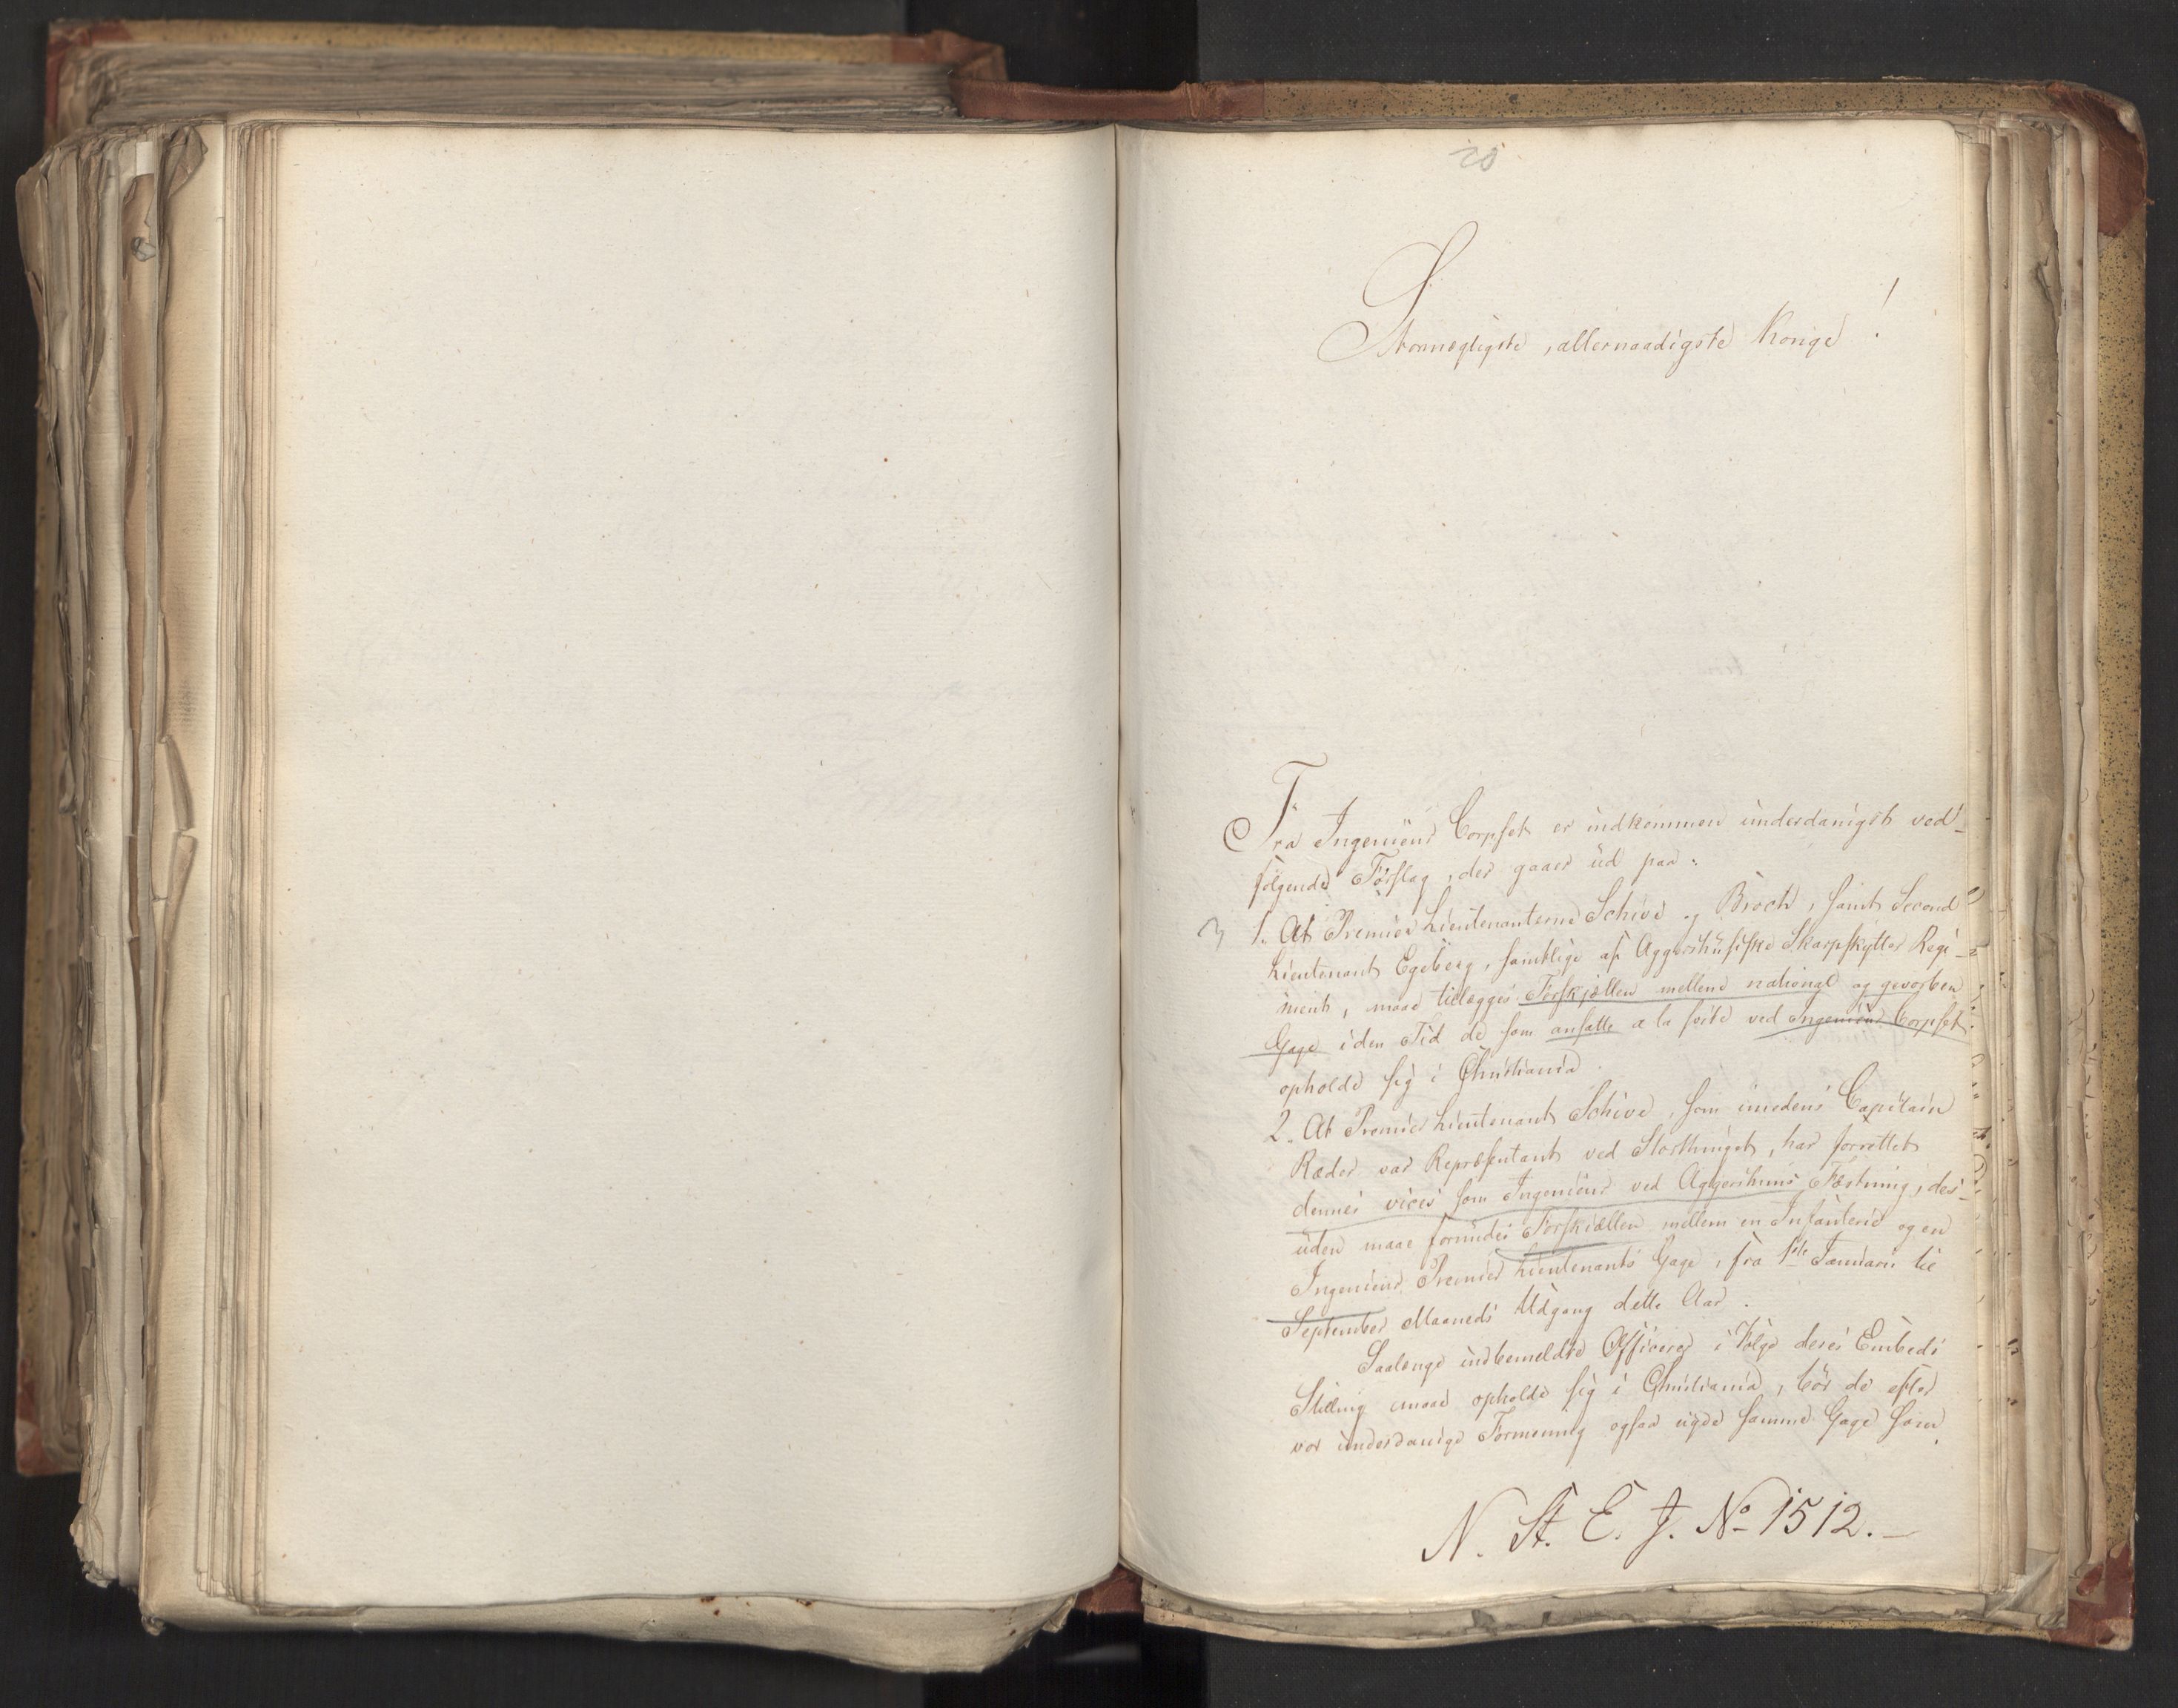 20
Stormægtigste, allernaadigste Konge!
Fra Ingenieur Corpset er indkommen underdanigst ved-
følgende Forslag, der gaaer ud paa:
1. At Premier Lieutenanterne Schive og Broch, samt Second
Lieutenant Egeberg, samtlige af Aggershusiske Skarpskytter Regi-
ment, maae tillægges Forskjællen mellem national og gevorben
Gage i den Tid de som ansatte a la suite ved Ingenieur Corpset
opholde sig i Christiania.
2. At Premier Lieutenant Schive, som imedens Capitain
Ræder var Repræsentant ved Storthinget, har forrettet
dennes vices som Ingenieur ved Aggershuus Fæstning, des-
uden maae forundes Forskiællen mellem en Infanterie og en
Ingenieur Premier Lieutenants Gage, fra 1ste Januari til
September Maaneds Udgang dette Aar.
Saalænge indbemeldte Officerer i Følge deres Embeds
Stilling maae opholde sig i Christiania, bør de efter
vor underdanige Formening ogsaa nyde samme Gage som
N. St. E. J. No 1512.